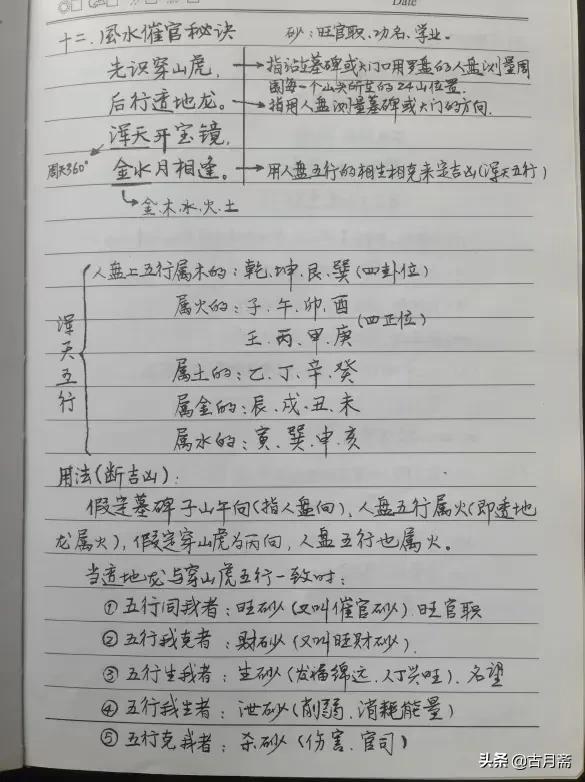 Date
十二、風水催官秘诀
砂：旺官职、功名、学业。
先识穿山虎，→指站墓碑或大门口用罗盘的人盘测量周
围每一个山头所在的24山位置.
后行透地龙。→指用人盘测量墓碑或大门的方向.
浑天开宝镜，
周天360°
金水月相逢。→用人盘五行的相生相克来定吉凶(浑天五行)
金.木.水.火.土
浑天五行
人盘上五行属木的：乾.坤.艮.巽(四卦位)
属火的：子.午.卯.酉
壬.丙.甲.庚(四正位)
属土的：乙.丁.辛.癸
属金的：辰.戌.丑.未
属水的：寅.巽.申.亥
用法(断吉凶)：
假定墓碑子山午向(指人盘向)，人盘五行属火(即透地
龙属火)，假定穿山虎为丙向，人盘五行也属火。
当透地龙与穿山虎五行一致时：
①五行同我者：旺砂(又叫催官砂).旺官职
②五行我克者：财砂(又叫旺财砂).
③五行生我者：生砂(发福绵远、人丁兴旺)、名望
④五行我生者：泄砂(削弱、消耗能量)
⑤五行克我者：杀砂(伤害、官司)
头条 @古月斋